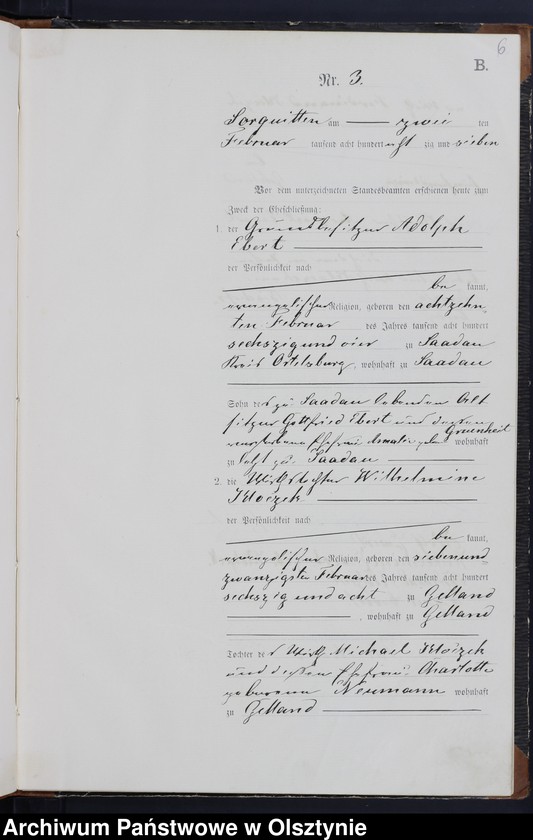 6
B.
Nr. 3.
Sorquitten am zwei ten
Februar tausend acht hundert acht zig und sieben
Vor dem unterzeichneten Standesbeamten erschienen heute zum
Zweck der Eheschließung:
1. der Grundbesitzer Adolph
Ebert
der Persönlichkeit nach
be kannt,
evangelischer Religion, geboren den achtzehn
ten Februar des Jahres tausend acht hundert
sechszig und vier zu Saadau
Kreis Ortelsburg, wohnhaft zu Saadau
Sohn des zu Saadau lebenden Alt
sitzer Gottfried Ebert und dessen
verstorbene Ehefrau Amalie geb. Gruenheit wohnhaft
zu Saadau
2. die Wirthstochter Wilhelmine
Kloczek
der Persönlichkeit nach
be kannt,
evangelischer Religion, geboren den siebenund
zwanzigsten Februar des Jahres tausend acht hundert
sechszig und acht zu Gelland
, wohnhaft zu Gelland
Tochter des Wirth Michael Kloczek
und dessen Ehefrau Charlotte
geborene Neumann wohnhaft
zu Gelland
Archiwum Państwowe w Olsztynie